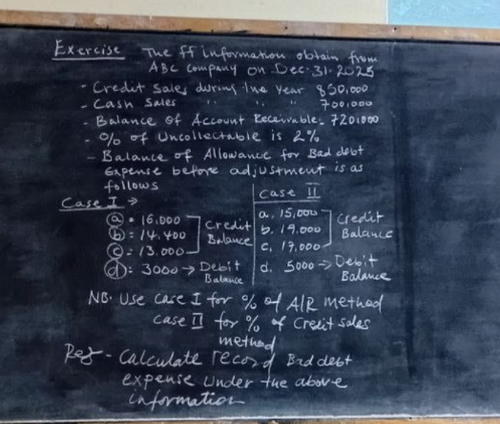 Exercise The ff information obtain from
ABC Company on Dec. 31. 2025
- Credit Sales during the year 850,000
- Cash Sales " " " 700,000
- Balance of Account Receivable - 720,000
- % of Uncollectable is 2%
- Balance of Allowance for Bad debt
Expense before adjustment is as
follows
Case I →
ⓐ = 16,000
ⓑ = 14,400
ⓒ = 13,000
Credit
Balance
ⓓ = 3000 → Debit
Balance
Case II
a. 15,000
b. 19,000
c. 17,000
Credit
Balance
d. 5000 → Debit
Balance
NB. Use Case I for % of A/R method
Case II for % of Credit Sales
method
Req - Calculate record Bad debt
expense under the above
information